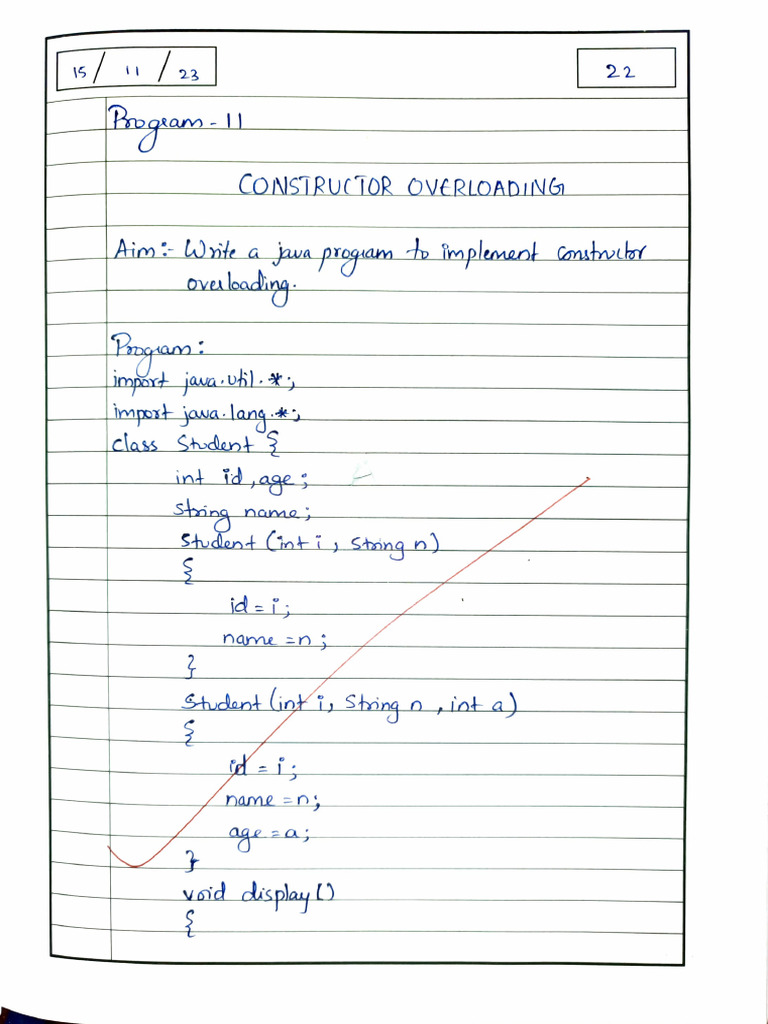 15/ 11 /23
22
Program - 11
CONSTRUCTOR OVERLOADING
Aim:- Write a java program to implement constructor
overloading.
Program:
import java.util.*;
import java.lang.*;
class Student {
int id, age;
String name;
Student (int i, String n)
{
id = i;
name = n;
}
Student (int i, String n, int a)
{
id = i;
name = n;
age = a;
}
void display()
{